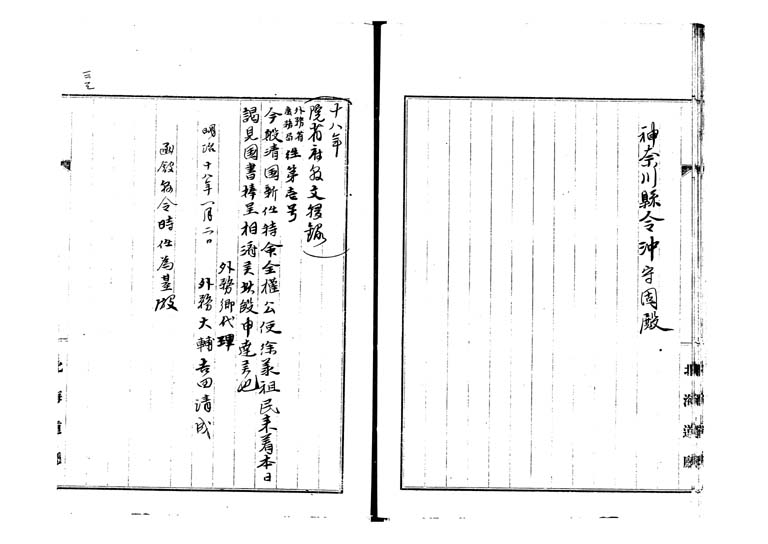 神奈川縣令沖守固殿
北海道廳
十八年
院省府縣文移録
外務省
庶務局
往第壱号
今般清国新任特命全權公使徐承祖氏来着本日
謁見国書捧呈相済候此段申達候也
外務卿代理
明治十八年一月二日
外務大輔吉田清成
函館縣令時任為基殿